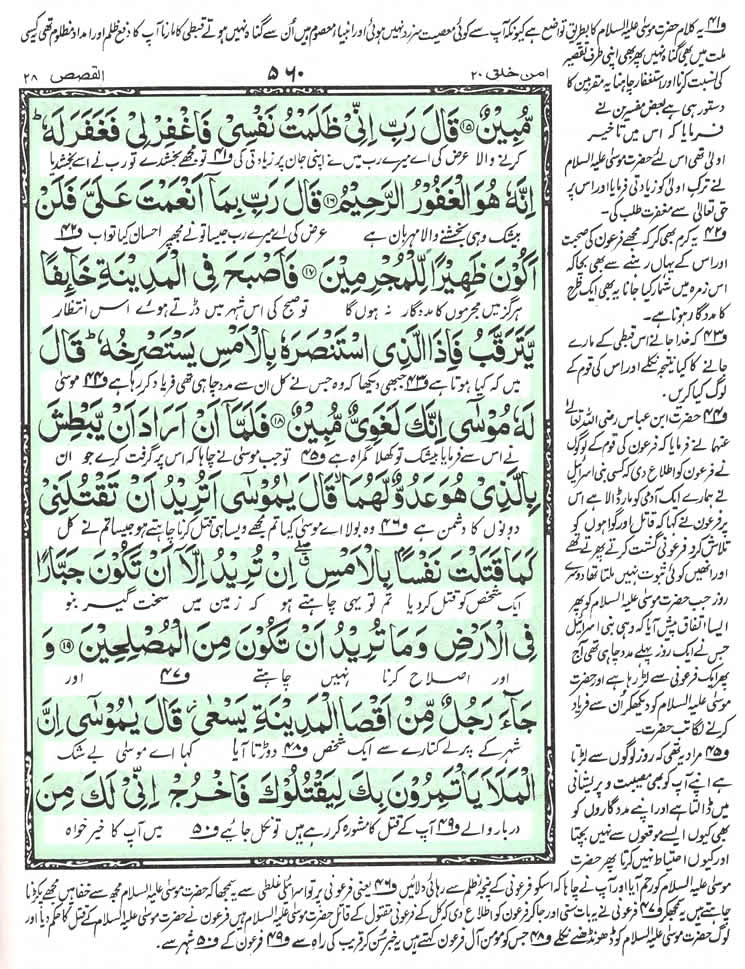 و۴۱ یہ کلام حضرت موسیٰ علیہ السلام کا بطریق تواضع ہے کیونکہ آپ سے کوئی معصیت سرزد نہیں ہوئی اور انبیاء معصوم ہیں اُن سے گناہ نہیں ہوتے قبطی کا مارنا آپ کا دفع ظلم اور امداد مظلوم تھی کسی
امن خلق ۲۰
۵۶۰
القصص ۲۸
ملت میں بھی گناہ نہیں پھر بھی اپنی طرف تقصیر
کی نسبت کرنا اور استغفار چاہنا یہ مقربین کا
دستور ہی ہے بعض مفسرین نے
فرمایا کہ اس میں تاخیر
اولیٰ تھی اس لئے حضرت موسیٰ علیہ السلام
نے ترک اولیٰ کو زیادتی فرمایا اور اس پر
حق تعالیٰ سے مغفرت طلب کی۔
و۴۲ یہ کرم بھی کر کہ مجھے فرعون کی صحبت
اور اس کے یہاں رہنے سے بھی بچا کہ
اس زمرہ میں شمار کیا جانا یہ بھی ایک طرح
کا مددگار ہونا ہے۔
و۴۳ کہ خدا جانے اس قبطی کے مارے
جانے کا کیا نتیجہ نکلے اور اس کی قوم کے
لوگ کیا کریں۔
و۴۴ حضرت ابن عباس رضی اللہ تعالیٰ
عنہما نے فرمایا کہ فرعون کی قوم کے لوگوں
نے فرعون کو اطلاع دی کہ کسی بنی اسرائیل
نے ہمارے ایک آدمی کو مار ڈالا ہے اس
پر فرعون نے کہا کہ قاتل اور گواہوں کو
تلاش کرو فرعونی گشت کرتے پھرتے تھے
اور انھیں کوئی ثبوت نہیں ملتا تھا دوسرے
روز جب حضرت موسیٰ علیہ السلام کو پھر
ایسا اتفاق پیش آیا کہ وہی بنی اسرائیل
جس نے ایک روز پہلے مدد چاہی تھی آج
پھر ایک فرعونی سے لڑ رہا ہے اور حضرت
موسیٰ علیہ السلام کو دیکھ کر اُن سے فریاد
کرنے لگا تب حضرت۔
و۴۵ مراد یہ تھی کہ روز لوگوں سے لڑتا
ہے اپنے آپ کو بھی مصیبت و پریشانی
میں ڈالتا ہے اور اپنے مددگاروں کو
بھی کیوں ایسے موقعوں سے نہیں بچتا
اور کیوں احتیاط نہیں کرتا پھر حضرت
مُّبِيْنٌ ۱۵ قَالَ رَبِّ اِنِّىْ ظَلَمْتُ نَفْسِىْ فَاغْفِرْ لِىْ فَغَفَرَ لَهٗ ؕ
کرنے والا عرض کی اے میرے رب میں نے اپنی جان پر زیادتی کی و۴۱ تو مجھے بخشدے تو رب نے اسے بخشدیا
اِنَّهٗ هُوَ الْغَفُوْرُ الرَّحِيْمُ ۱۶ قَالَ رَبِّ بِمَاۤ اَنْعَمْتَ عَلَىَّ فَلَنْ
بیشک وہی بخشنے والا مہربان ہے عرض کی اے میرے رب جیسا تو نے مجھ پر احسان کیا تو اب و۴۲
اَكُوْنَ ظَهِيْرًا لِّلْمُجْرِمِيْنَ ۱۷ فَاَصْبَحَ فِى الْمَدِيْنَةِ خَآئِفًا
ہرگز میں مجرموں کا مددگار نہ ہوں گا تو صبح کی اس شہر میں ڈرتے ہوئے اس انتظار
يَّتَرَقَّبُ فَاِذَا الَّذِى اسْتَنْصَرَهٗ بِالْاَمْسِ يَسْتَصْرِخُهٗ ؕ قَالَ
میں کہ کیا ہوتا ہے و۴۳ جبھی دیکھا کہ وہ جس نے کل ان سے مدد چاہی تھی فریاد کر رہا ہے و۴۴ موسیٰ
لَهٗ مُوْسٰۤى اِنَّكَ لَغَوِىٌّ مُّبِيْنٌ ۱۸ فَلَمَّاۤ اَنْ اَرَادَ اَنْ يَّبْطِشَ
نے اس سے فرمایا بیشک تو کھلا گمراہ ہے و۴۵ تو جب موسیٰ نے چاہا کہ اس پر گرفت کرے جو ان
بِالَّذِىْ هُوَ عَدُوٌّ لَّهُمَا ۙ قَالَ يٰمُوْسٰۤى اَتُرِيْدُ اَنْ تَقْتُلَنِىْ
دونوں کا دشمن ہے و۴۶ وہ بولا اے موسیٰ کیا تم مجھے ویسا ہی قتل کرنا چاہتے ہو جیسا تم نے کل
كَمَا قَتَلْتَ نَفْسًۢا بِالْاَمْسِ ۖ اِنْ تُرِيْدُ اِلَّاۤ اَنْ تَكُوْنَ جَبَّارًا
ایک شخص کو قتل کردیا تم تو یہی چاہتے ہو کہ زمین میں سخت گیر بنو
فِى الْاَرْضِ وَمَا تُرِيْدُ اَنْ تَكُوْنَ مِنَ الْمُصْلِحِيْنَ ۱۹ وَ
اور اصلاح کرنا نہیں چاہتے و۴۷ اور
جَآءَ رَجُلٌ مِّنْ اَقْصَا الْمَدِيْنَةِ يَسْعٰى ۡ قَالَ يٰمُوْسٰۤى اِنَّ
شہر کے پرلے کنارے سے ایک شخص و۴۸ دوڑتا آیا کہا اے موسیٰ بے شک
الْمَلَاَ يَاْتَمِرُوْنَ بِكَ لِيَقْتُلُوْكَ فَاخْرُجْ اِنِّىْ لَكَ مِنَ
دربار والے و۴۹ آپ کے قتل کا مشورہ کر رہے ہیں تو نکل جائیے و۵۰ میں آپ کا خیر خواہ
موسیٰ علیہ السلام کو رحم آیا اور آپ نے چاہا کہ اسکو فرعونی کے پنجۂ ظلم سے رہائی دلائیں و۴۶ یعنی فرعونی پر تو اسرائیلی غلطی سے یہ سمجھا کہ حضرت موسیٰ علیہ السلام مجھ سے خفا ہیں مجھے پکڑنا
چاہتے ہیں یہ سمجھ کر و۴۷ فرعونی نے یہ بات سنی اور جا کر فرعون کو اطلاع دی کہ کل کے فرعونی مقتول کے قاتل حضرت موسیٰ علیہ السلام ہیں فرعون نے حضرت موسیٰ علیہ السلام کے قتل کا حکم دیا اور
لوگ حضرت موسیٰ علیہ السلام کو ڈھونڈھنے نکلے و۴۸ جس کو مومن آل فرعون کہتے ہیں یہ خبر سُن کر قریب کی راہ سے و۴۹ فرعون کے و۵۰ شہر سے۔